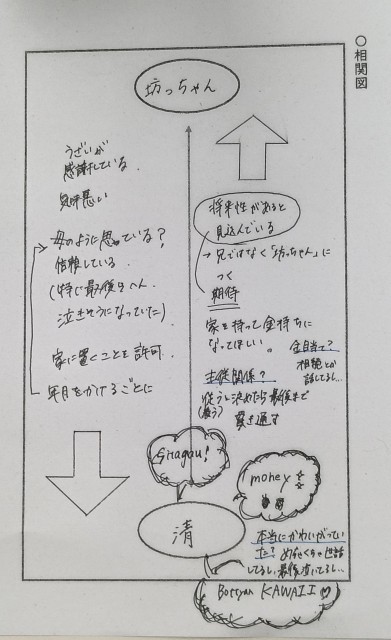 ○相関図
坊っちゃん
うざいが
感謝している
気味悪い
母のように思っている?
信頼している
(特に最後らへん
泣きそうになっていた)
家に置くことを許可
年月をかけるごとに
将来性があると
見込んでいる
→兄ではなく「坊っちゃん」に
つく
期待
家を持って金持ちに
なってほしい。
金目当て?
相続とか
話してるし…
主従関係?
従うと決めたら最後まで
貫き通す
Shitagau!
money
清
本当にかわいがってい
た? めちゃくちゃ世話
してるし、最後泣いてるし…
Bottyan KAWAII ♡